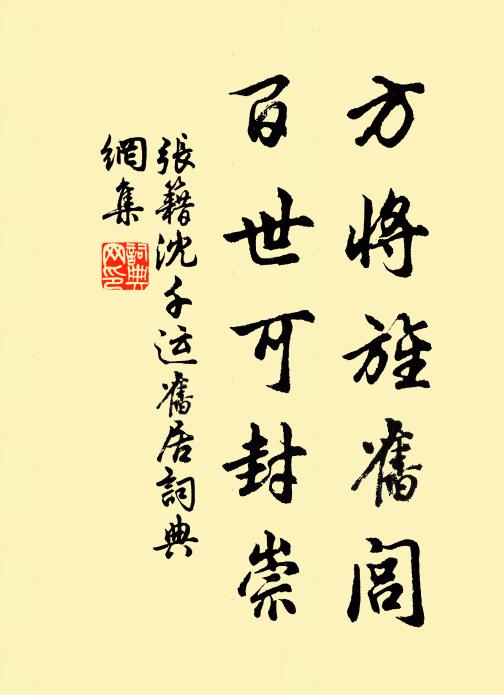 方将旌舊閭
百世可封崇
張籍沈千运舊居詞典
網集
詞典
网印